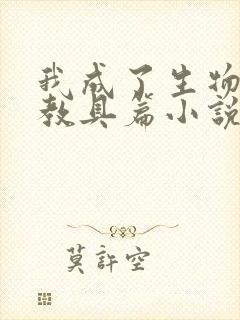 我成了生物
教具篇小説
莫許空